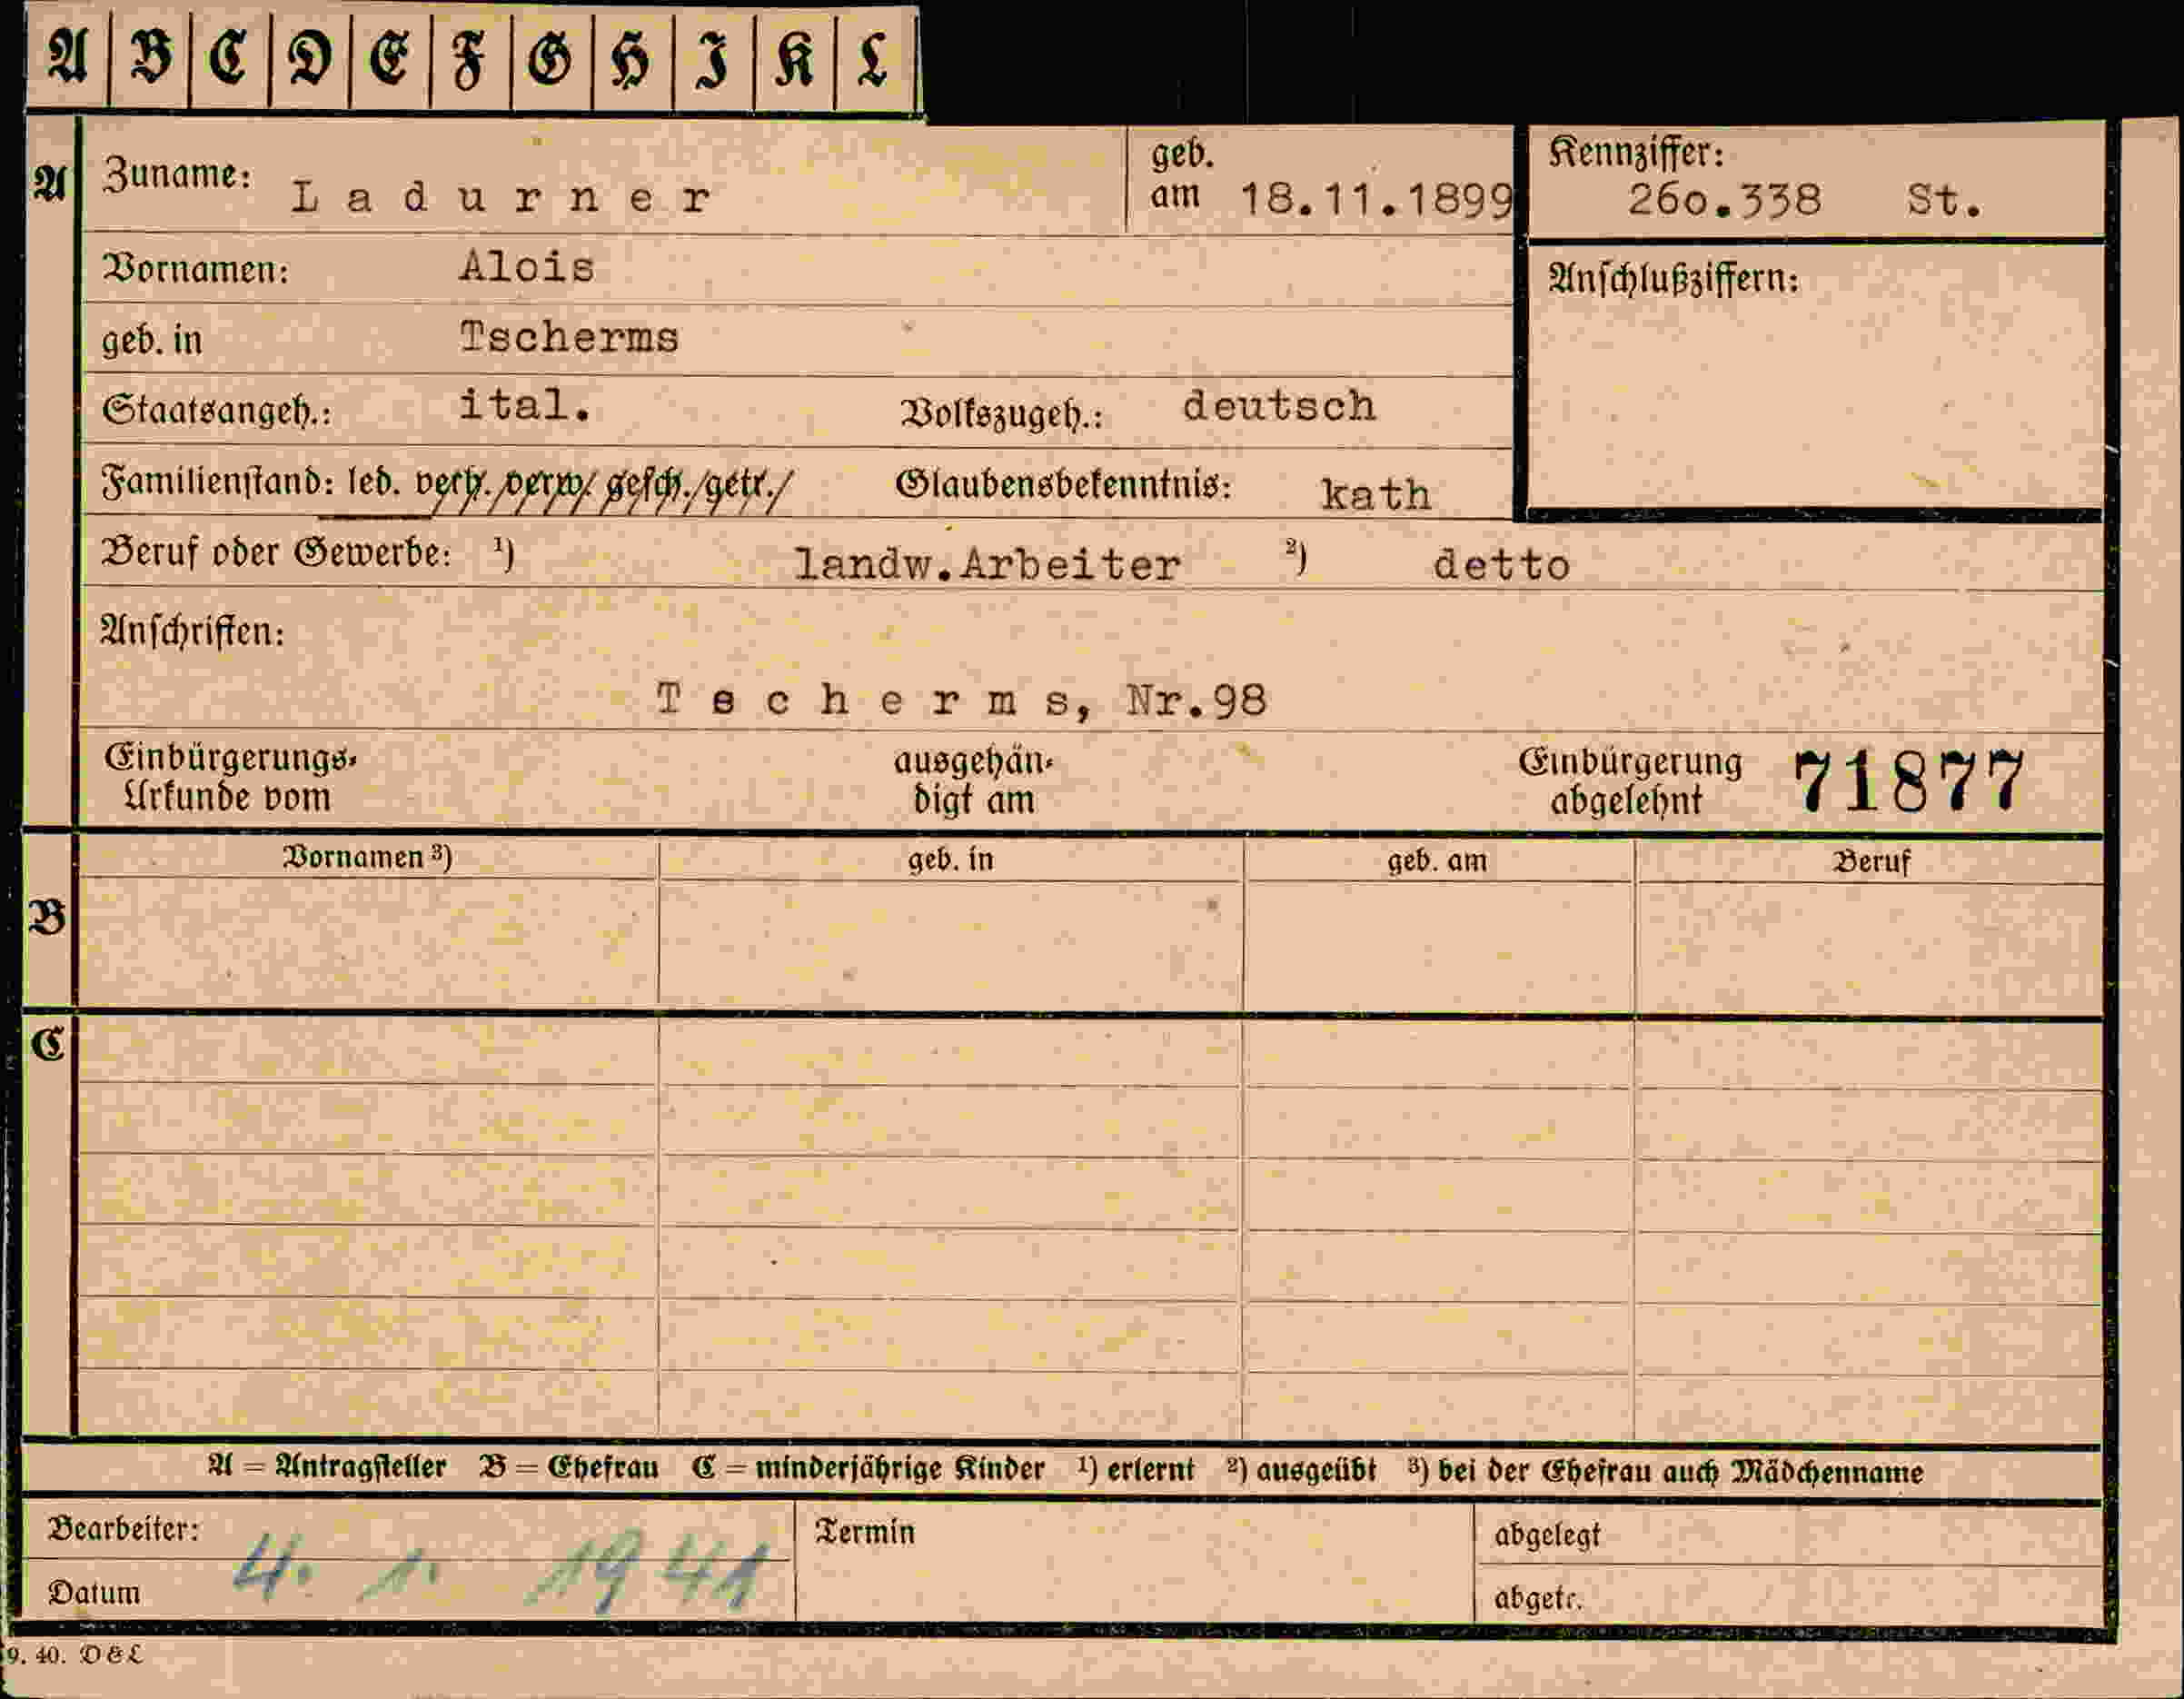 A B C D E F G H I K L
A Zuname: Ladurner geb. am 18.11.1899 Kennziffer: 260.338 St.
Vornamen: Alois Anschlußziffern:
geb. in Tscherms
Staatsangeh.: ital. Volkszugeh.: deutsch
Familienstand: led. verh. verw. gesch. getr. Glaubensbekenntnis: kath
Beruf oder Gewerbe: ¹) landw.Arbeiter ²) detto
Anschriften:
Tscherms, Nr.98
Einbürgerungs- ausgehän- Einbürgerung 71877
Urkunde vom digt am abgelehnt
Vornamen ³) geb. in geb. am Beruf
B
C
A = Antragsteller B = Ehefrau C = minderjährige Kinder ¹) erlernt ²) ausgeübt ³) bei der Ehefrau auch Mädchenname
Bearbeiter: Termin abgelegt
Datum 4. 1. 1941 abgetr.
9. 40. D & L